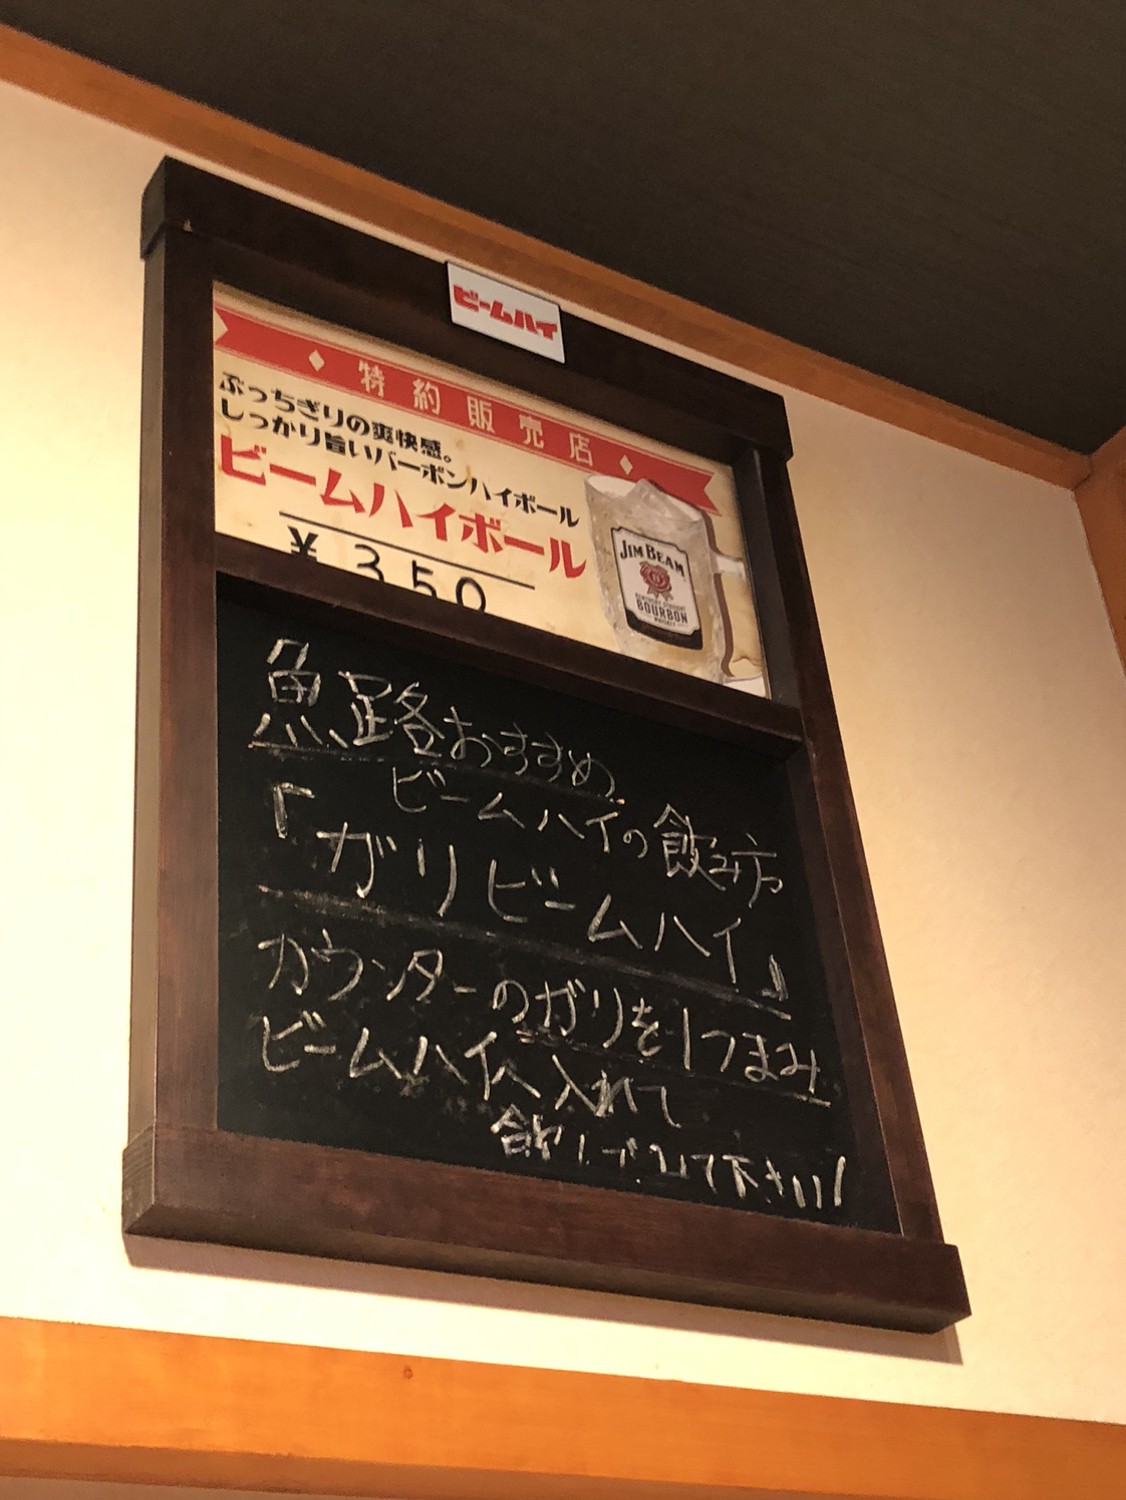 ビームハイ
特約販売店
ぶっちぎりの爽快感。
しっかり旨いバーボンハイボール
ビームハイボール
¥350
JIM BEAM
KENTUCKY STRAIGHT
BOURBON
WHISKEY
魚路おすすめ
ビームハイの飲み方
『ガリビームハイ』
カウンターのガリを1つまみ
ビームハイへ入れて
飲んでみて下さい!